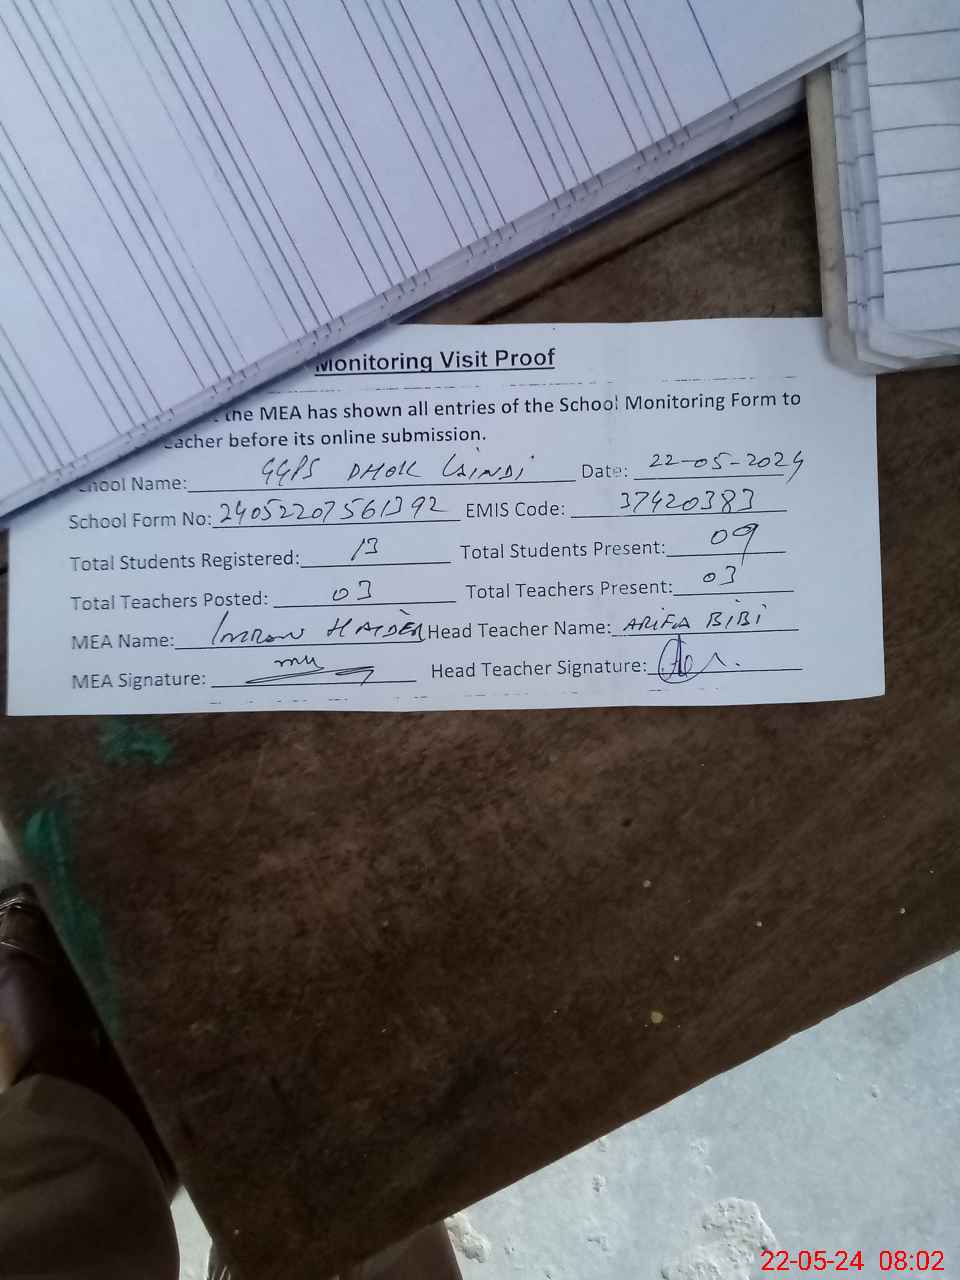 Monitoring Visit Proof
the MEA has shown all entries of the School Monitoring Form to
eacher before its online submission.
School Name: GGPS DHOK Date: 22-05-2024
School Form No: 24052207561392 EMIS Code: 37420383
Total Students Registered: 13 Total Students Present: 09
Total Teachers Posted: 03 Total Teachers Present: 03
MEA Name: IMRAN HAIDER Head Teacher Name: ARIFA BIBI
MEA Signature: Head Teacher Signature:
22-05-24 08:02